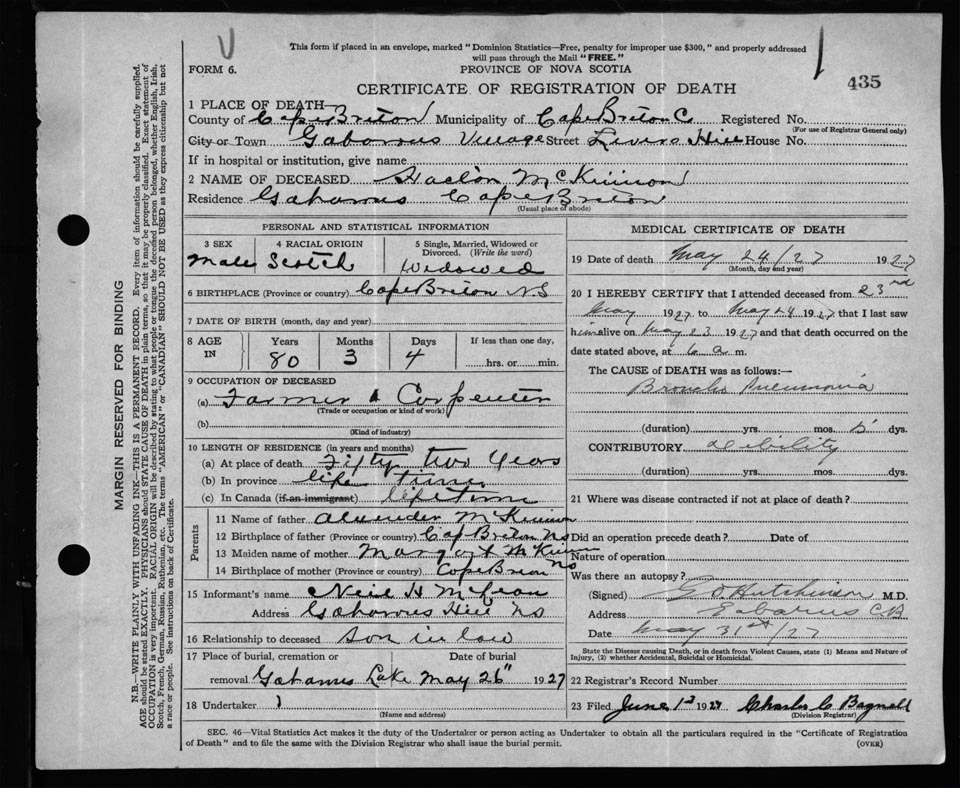 This form if placed in an envelope, marked "Dominion Statistics—Free, penalty for improper use $300," and properly addressed
will pass through the Mail "FREE."
FORM 6.
PROVINCE OF NOVA SCOTIA
435
CERTIFICATE OF REGISTRATION OF DEATH
1 PLACE OF DEATH
County of Cape Breton Municipality of Cape Breton C Registered No.
(For use of Registrar General only)
City or Town Gabarus Village Street Levers Hill House No.
If in hospital or institution, give name
2 NAME OF DECEASED McKinnon
Residence Gabarus Cape Breton
(Usual place of abode)
PERSONAL AND STATISTICAL INFORMATION
3 SEX 4 RACIAL ORIGIN 5 Single, Married, Widowed or Divorced. (Write the word)
Male Scotch Widowed
6 BIRTHPLACE (Province or country) Cape Breton NS
7 DATE OF BIRTH (month, day and year)
8 AGE IN Years Months Days If less than one day,
80 3 4 hrs. or min.
9 OCCUPATION OF DECEASED
(a) Farmer & Carpenter
(Trade or occupation or kind of work)
(b)
(Kind of industry)
10 LENGTH OF RESIDENCE (in years and months)
(a) At place of death Fifty two years
(b) In province life time
(c) In Canada (if an immigrant) lifetime
Parents
11 Name of father McKinnon
12 Birthplace of father (Province or country) Cap Breton NS
13 Maiden name of mother Margaret McKinnon
14 Birthplace of mother (Province or country) Cape Breton NS
15 Informant's name Neil H McLean
Address Gabarus Hill NS
16 Relationship to deceased son in law
17 Place of burial, cremation or Date of burial
removal Gabarus Lake May 26" 1927
18 Undertaker
(Name and address)
MEDICAL CERTIFICATE OF DEATH
19 Date of death May 24/27 1927
(Month, day and year)
20 I HEREBY CERTIFY that I attended deceased from 23rd
May 1927 to May 24 1927 that I last saw
him alive on May 23 1927 and that death occurred on the
date stated above, at 6 a m.
The CAUSE of DEATH was as follows:—
Broncho Pneumonia
(duration) yrs. mos. 5 dys.
CONTRIBUTORY debility
(duration) yrs. mos. dys.
21 Where was disease contracted if not at place of death?
Did an operation precede death? Date of
Nature of operation
Was there an autopsy?
(Signed) Hutchinson M.D.
Address Gabarus C B
Date May 31st/27
State the Disease causing Death, or in death from Violent Causes, state (1) Means and Nature of
Injury, (2) whether Accidental, Suicidal or Homicidal.
22 Registrar's Record Number
23 Filed June 1st 1927 Charles C Bagnall
(Division Registrar)
SEC. 46—Vital Statistics Act makes it the duty of the Undertaker or person acting as Undertaker to obtain all the particulars required in the "Certificate of Registration
of Death" and to file the same with the Division Registrar who shall issue the burial permit.
(OVER)
MARGIN RESERVED FOR BINDING
N.B.—WRITE PLAINLY WITH UNFADING INK—THIS IS A PERMANENT RECORD. Every item of information should be carefully supplied.
AGE should be stated EXACTLY. PHYSICIANS should STATE CAUSE OF DEATH in plain terms, so that it may be properly classified. Exact statement of
OCCUPATION is very important. RACIAL ORIGIN will be described by stating to what people or tongue the deceased person belonged, whether English, Irish,
Scotch, French, German, Russian, Ruthenian, etc. The terms "AMERICAN" or "CANADIAN" SHOULD NOT BE USED as they express citizenship but not
a race or people. See instructions on back of Certificate.